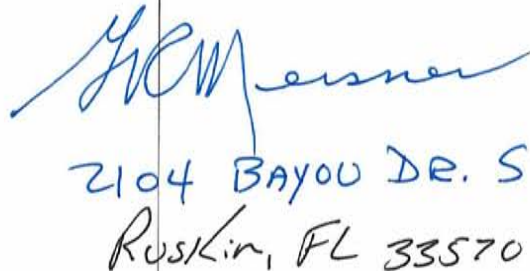 Meisner
2104 BAYOU DR. S
Ruskin, FL 33570